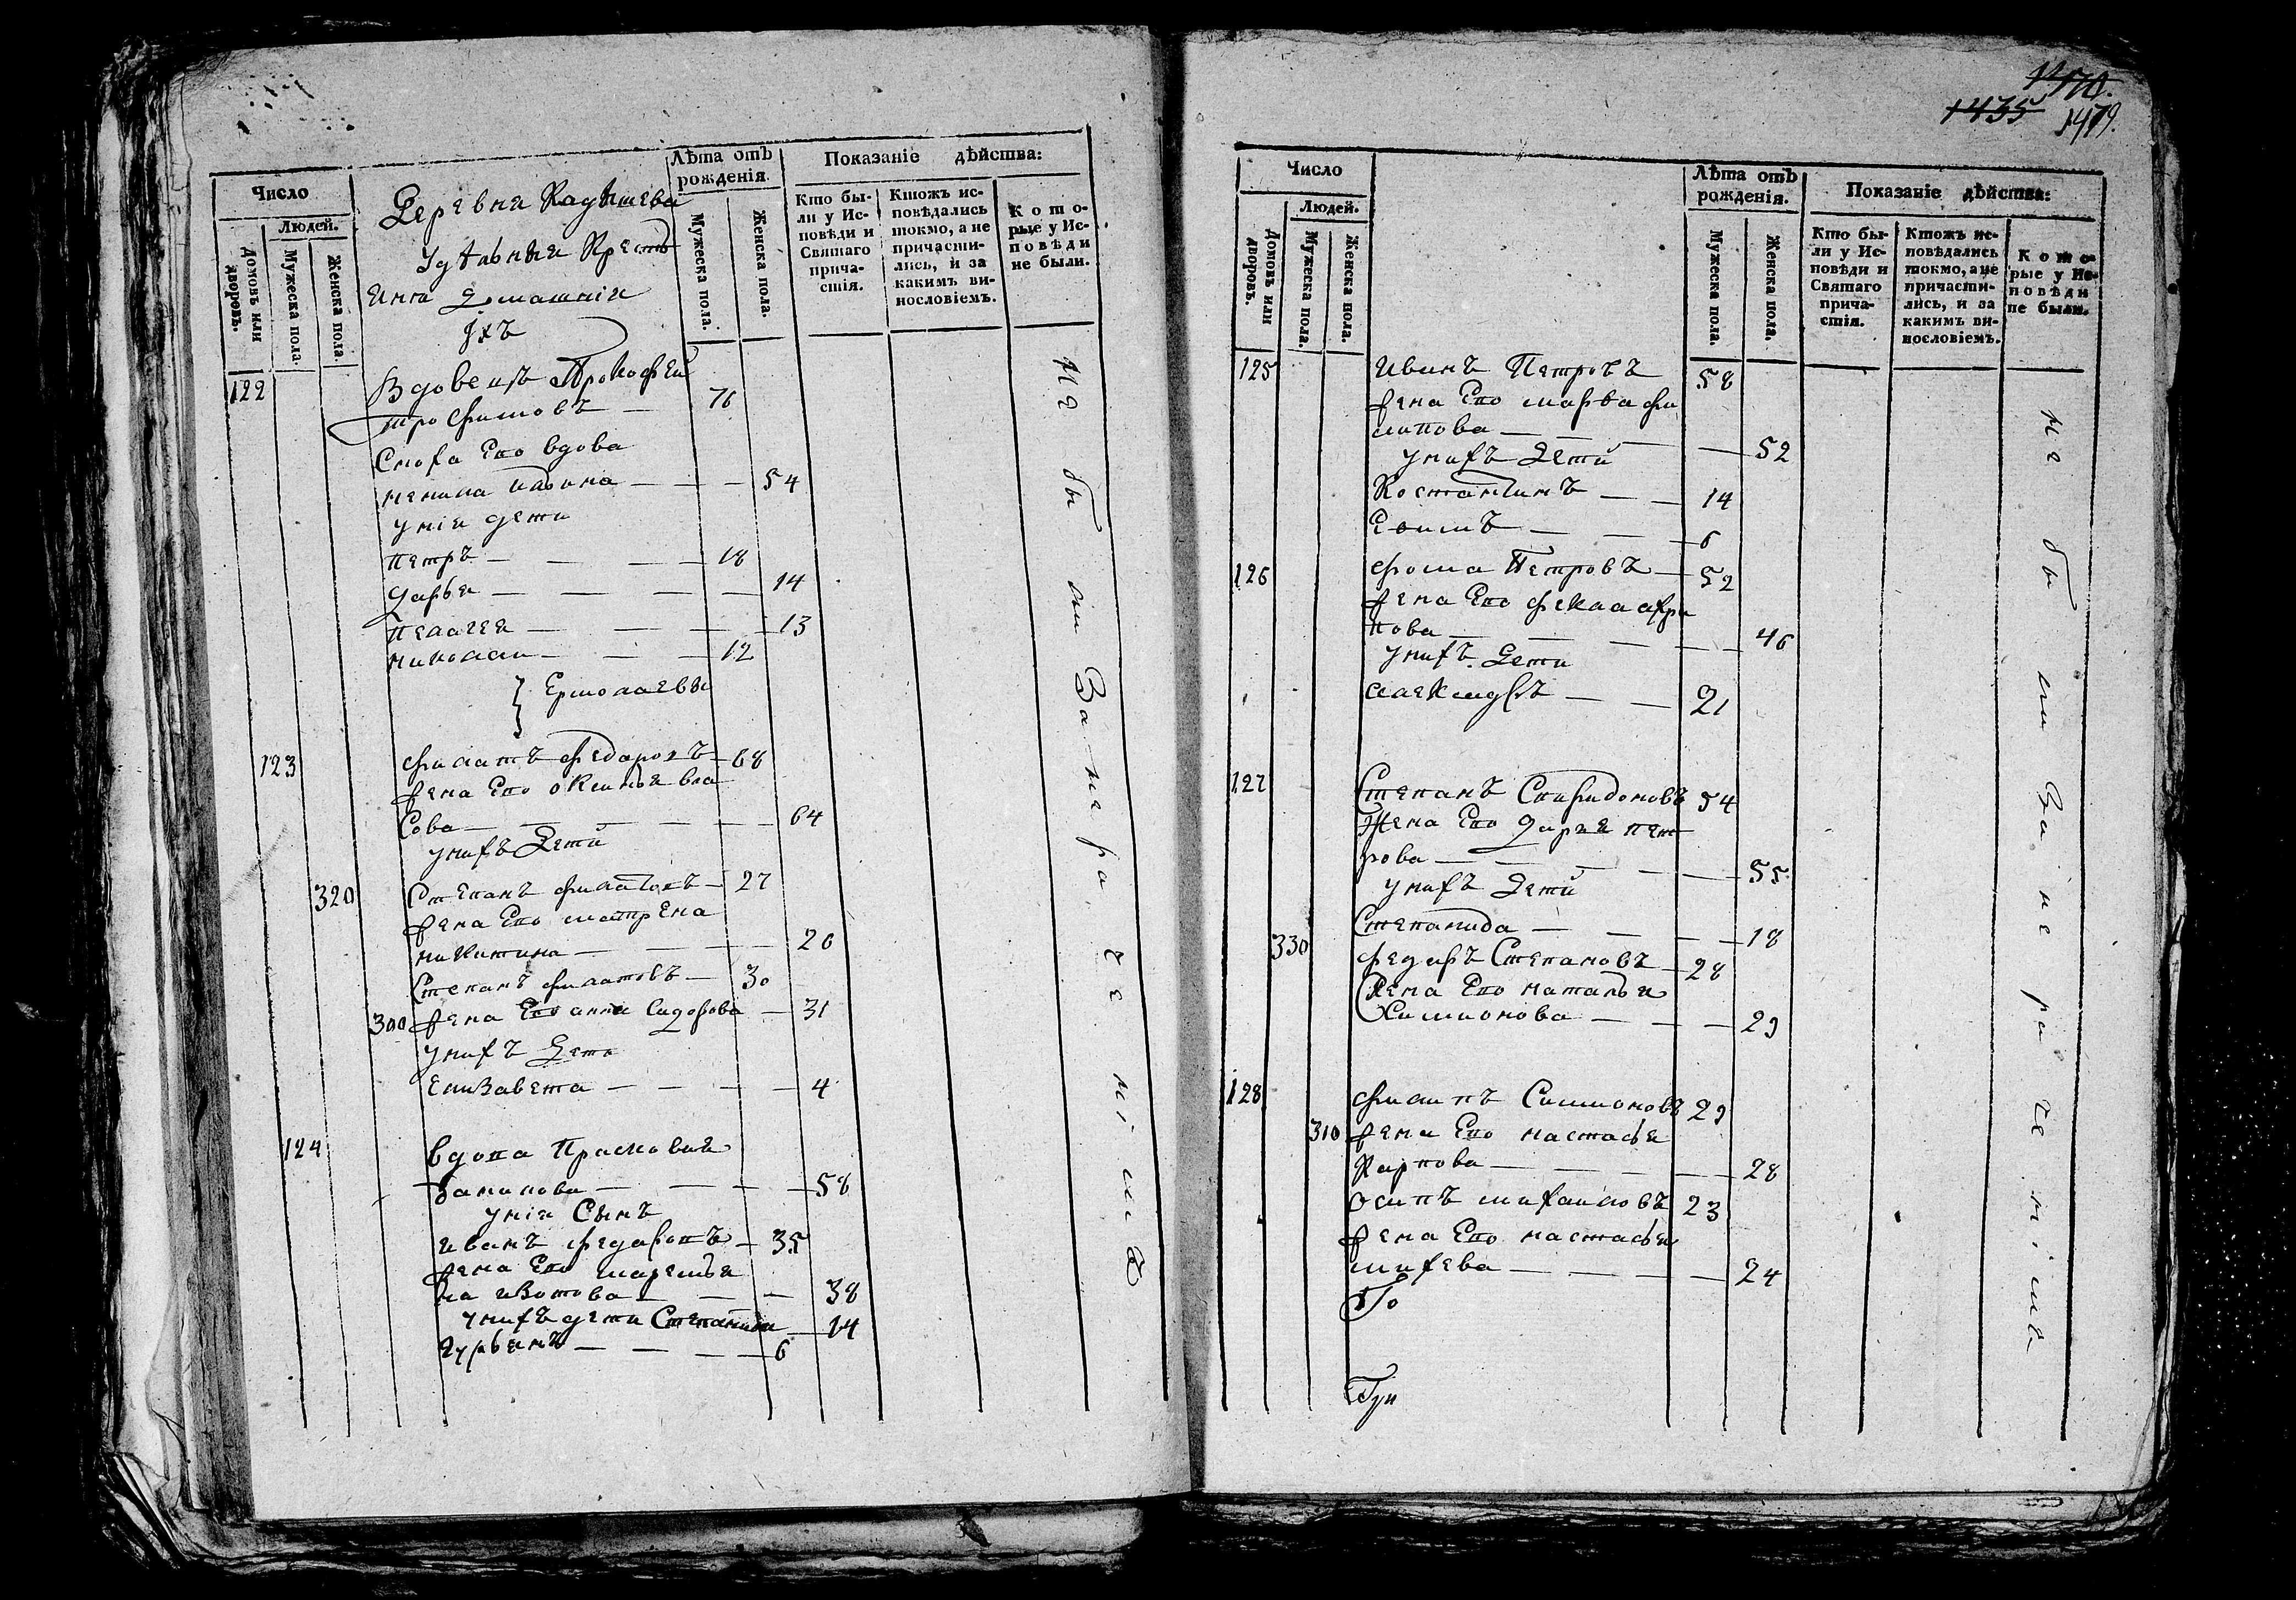 Число
Людей.
Домовъ или дворовъ.
Мужеска пола.
Женска пола.
Деревня Кадышева
Удѣльныя Крестъ
Яня Домашнія
ихъ
Лѣта отъ рожденія.
Мужеска пола.
Женска пола.
Показаніе дѣйства:
Кто бы-
ли у Ис-
повѣди и
Святаго
прича-
стія.
Ктожъ ис-
повѣдались
токмо, а не
причасти-
лись, и за
какимъ ви-
нословіемъ.
К о т о-
рые у Ис-
п о в ѣ д и
не были.
122 Вдовецъ Прокофей
трофимовъ — 76
Сноха Его вдова
ненила — — — 54
унія дети
петръ — — — 18
дарья — — — — 14
пелагея — — — 13
николаи — — — 12
Ермолаевы
123 филатъ федаровъ — 68
жена Его оксинья вла
Сова — — — — 64
унихъ Дети
320 Степанъ филатовъ — 27
жена Его матрена
никитина — — — 26
Степанъ филатовъ — 30
300 жена Его анна Сидорова — 31
унихъ Дети
Елизавета — — — — 4
124 вдова Прасковия
данилова — — — — 58
унія Сынъ
иванъ федаровъ — 35
жена Его маремья
на изотова — — — 38
унихъ дети Степанида — 14
гурьянъ — — — — 6
не были За нерачениемъ
1470.
1435 1479.
Число
Людей.
Домовъ или дворовъ.
Мужеска пола.
Женска пола.
Лѣта отъ рожденія.
Мужеска пола.
Женска пола.
Показаніе дѣйства:
Кто бы-
ли у Ис-
повѣди и
Святаго
прича-
стія.
Ктожъ ис-
повѣдались
токмо, а не
причасти-
лись, и за
какимъ ви-
нословіемъ.
К о т о-
рые у Ис-
п о в ѣ д и
не были.
125 Иванъ Петровъ 58
жена Его марфа фи
липова — — — — 52
унихъ Дети
Костантинъ — — 14
Ефимъ — — — 6
126 фома Петровъ — 52
жена Его фекла
пова — — — — 46
унихъ Дети
александръ — — 21
127 Степанъ Спиридоновъ 54
Жена Его дария пет
рова — — — — 55
унихъ Дети
Степанида — — — — 18
330 федаръ Степановъ — 28
Жена Его наталья
— — — 29
128 филипъ Симионовъ 29
310 жена Его настасья
Карпова — — — — 28
осипъ михаиловъ 23
жена Его настасья
михева — — — — 24
не были За нерачениемъ